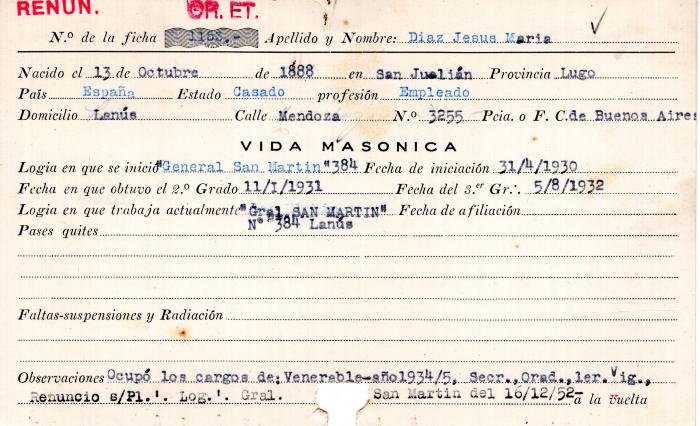 RENUN. OR. ET.
N.º de la ficha 1153.- Apellido y Nombre: Diaz Jesus Maria
Nacido el 13 de Octubre de 1888 en San Juelián Provincia Lugo
País España Estado Casado profesión Empleado
Domicilio Lanús Calle Mendoza N.º 3255 Pcia. o F. C. de Buenos Aires
VIDA MASONICA
Logia en que se inició "General San Martin" 384 Fecha de iniciación 31/4/1930
Fecha en que obtuvo el 2.º Grado 11/I/1931 Fecha del 3.er Gr∴ 5/8/1932
Logia en que trabaja actualmente "Gral. SAN MARTIN" Fecha de afiliación
Nº 384 Lanús
Pases quites
Faltas-suspensiones y Radiación
Observaciones Ocupó los cargos de: Venerable-año1934/5, Secr., Orad., 1er. Vig.,
Renuncio s/Pl.'. Log.'. Gral. San Martin del 16/12/52- a la vuelta